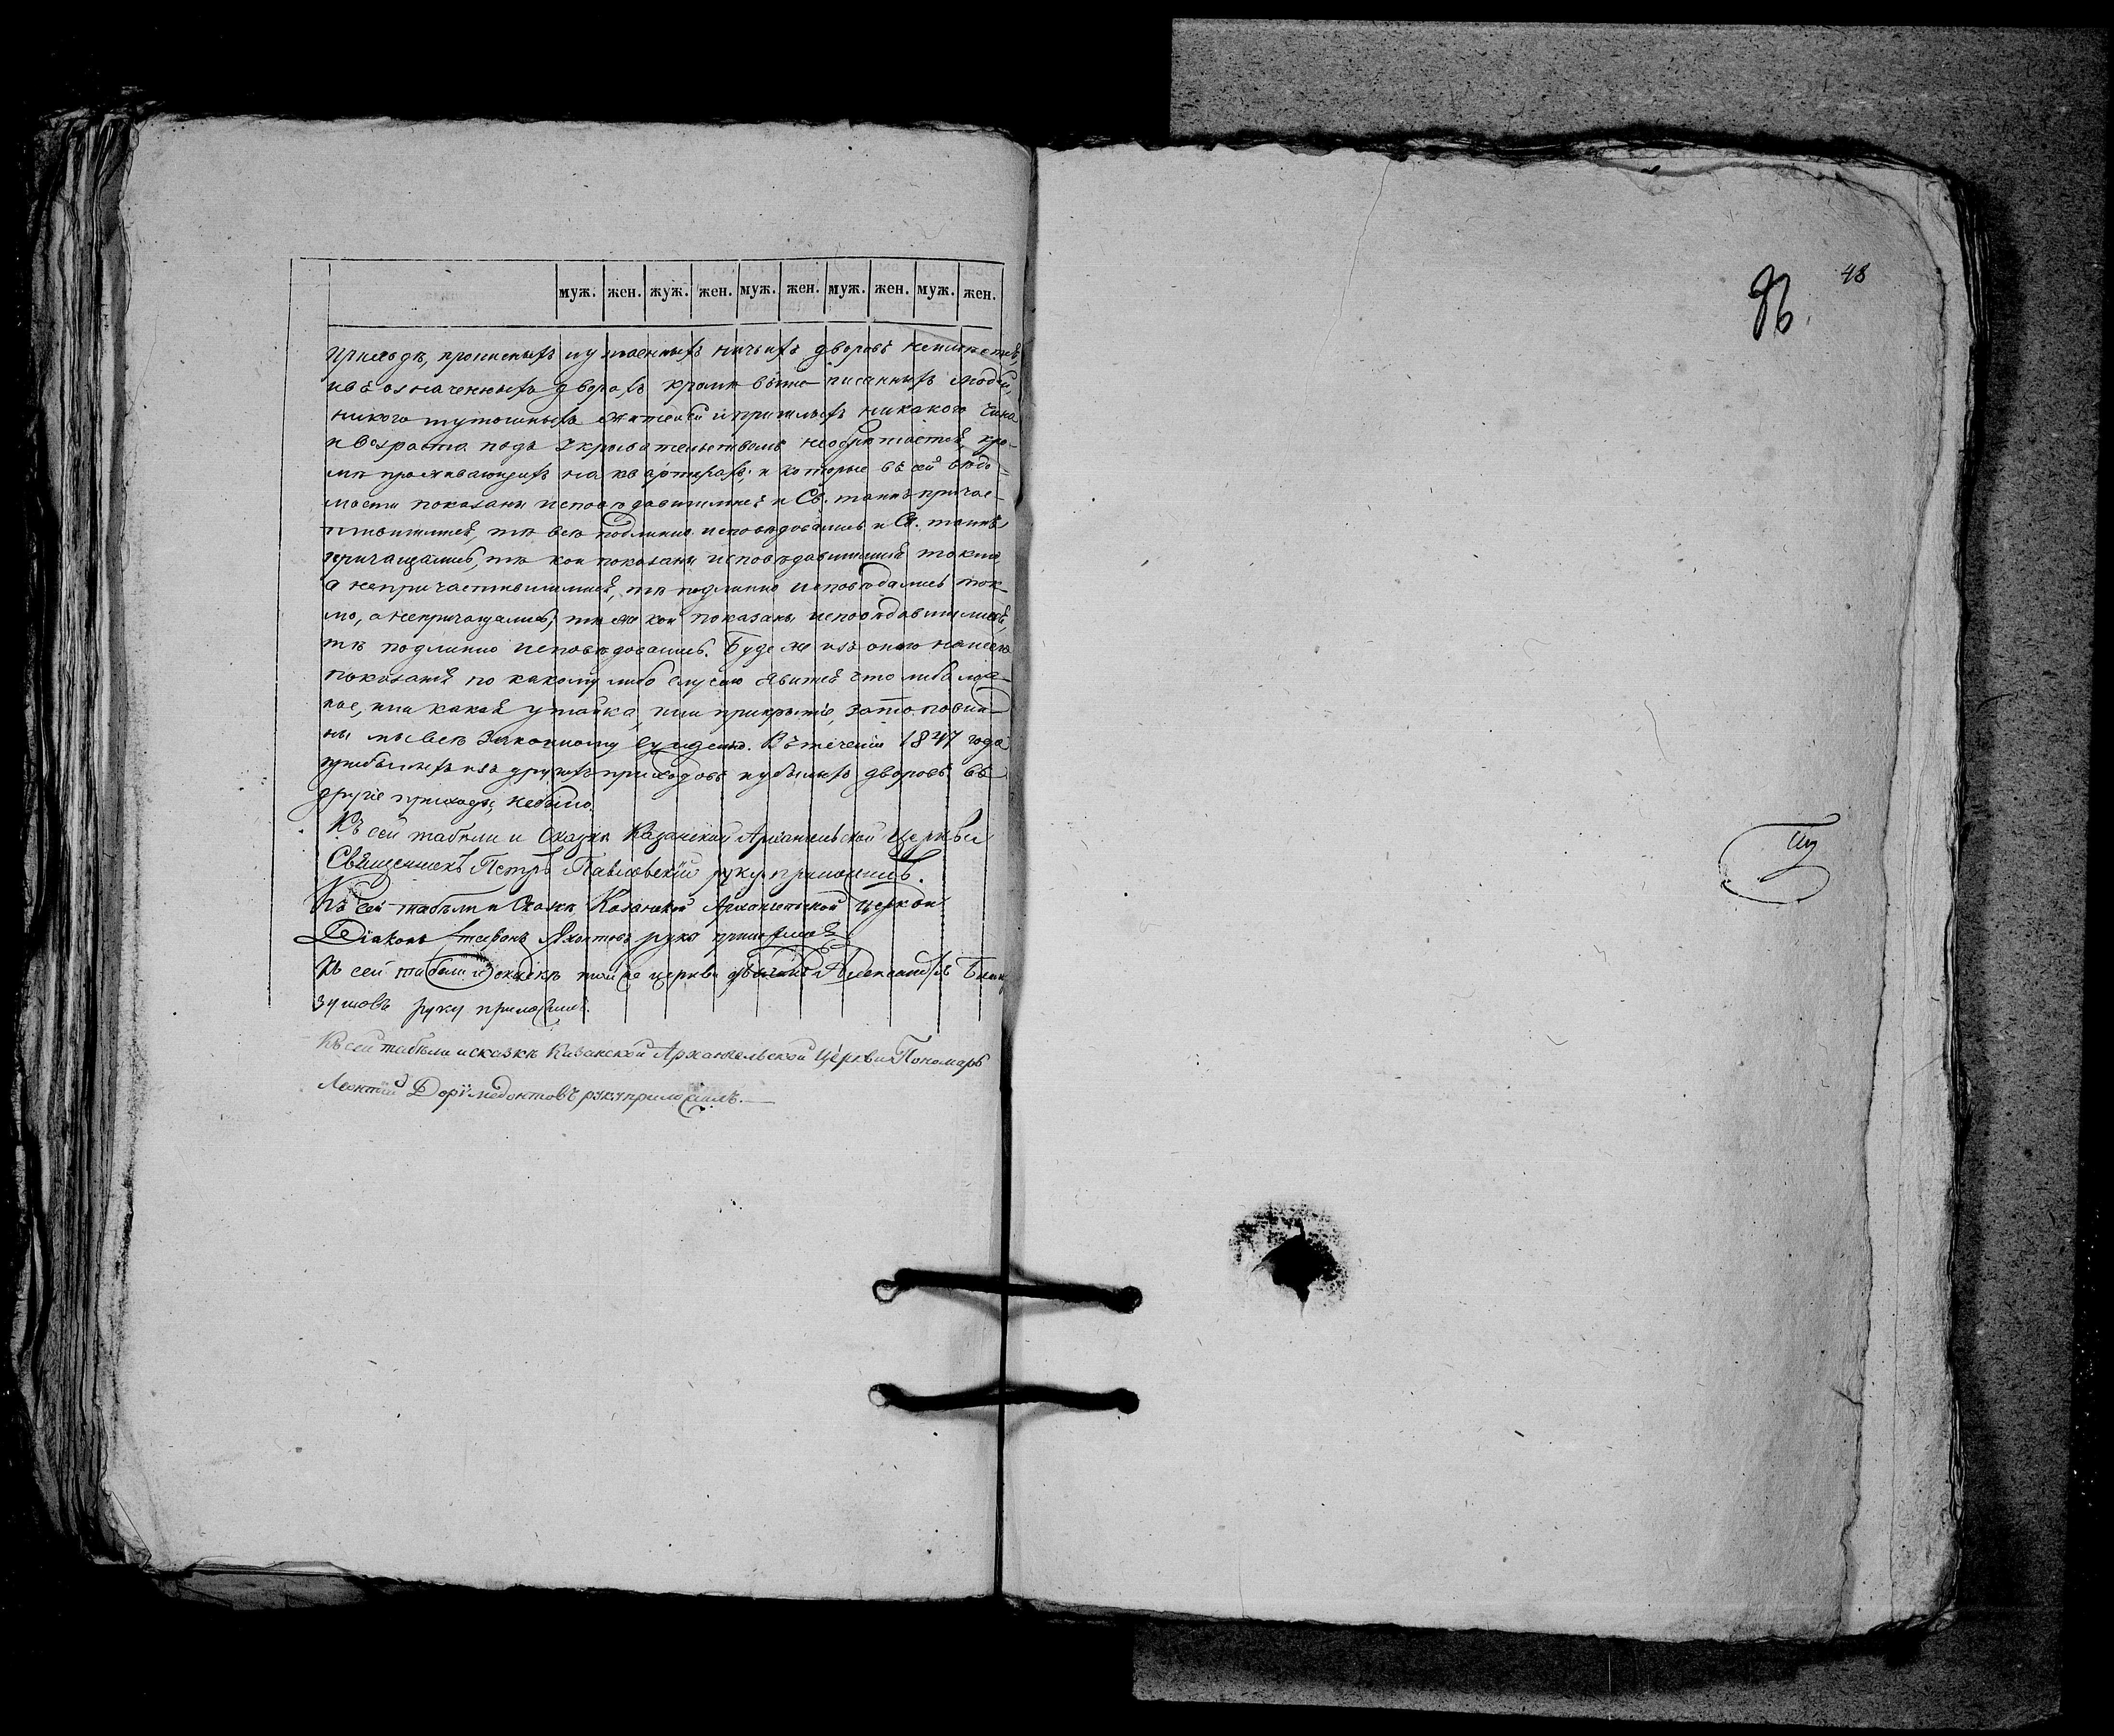 муж. жен. муж. жен. муж. жен. муж. жен. муж. жен.
приходѣ, прописныхъ и утаенныхъ ничьихъ дворовъ неимѣется,
и въ означенныхъ дворахъ кромѣ выше писанныхъ людей,
никого тутошныхъ жителей и пришлыхъ никакого чина
и возраста подъ укрывательствомъ необрѣтается, кро-
мѣ проживающихъ на квартирахъ; и которые въ сей вѣдо-
мости показаны исповѣдавшимися и Св. таинъ причас-
тившимися, тѣ всѣ подлинно исповѣдовались и Св. таинъ
причащались, тѣ кои показаны исповѣдавшимися токмо
а непричастившимися, тѣ подлинно исповѣдались ток-
мо, а непричащались; тѣ же кои показаны неисповѣдавшимися,
тѣ подлинно неисповѣдовались. Буде же изъ оного нашего
показанія по какому либо случаю явится что либо лож-
ное, или какая утайка, или прикрытіе, зато повин-
ны мы всѣ законному сужденію. Въ теченіи 1847 года
прибылыхъ изъ другихъ приходовъ и убылыхъ дворовъ въ
другіе приходы, небыло.
Къ сей табели и сказкѣ Казанской Архангельской Церкви
Священникъ Петръ Павловскій руку приложилъ.
Къ сей табели и сказкѣ Казанской Архангельской церкви
Діаконъ Яхонтовъ руку приложилъ
Къ сей табели и сказкѣ той же церкви дьячекъ Александръ
руку приложилъ.
Къ сей табели и сказкѣ Казанской Архангельской Церкви Пономарь
Леонтій Доримедонтовъ руку приложилъ.
48
96.